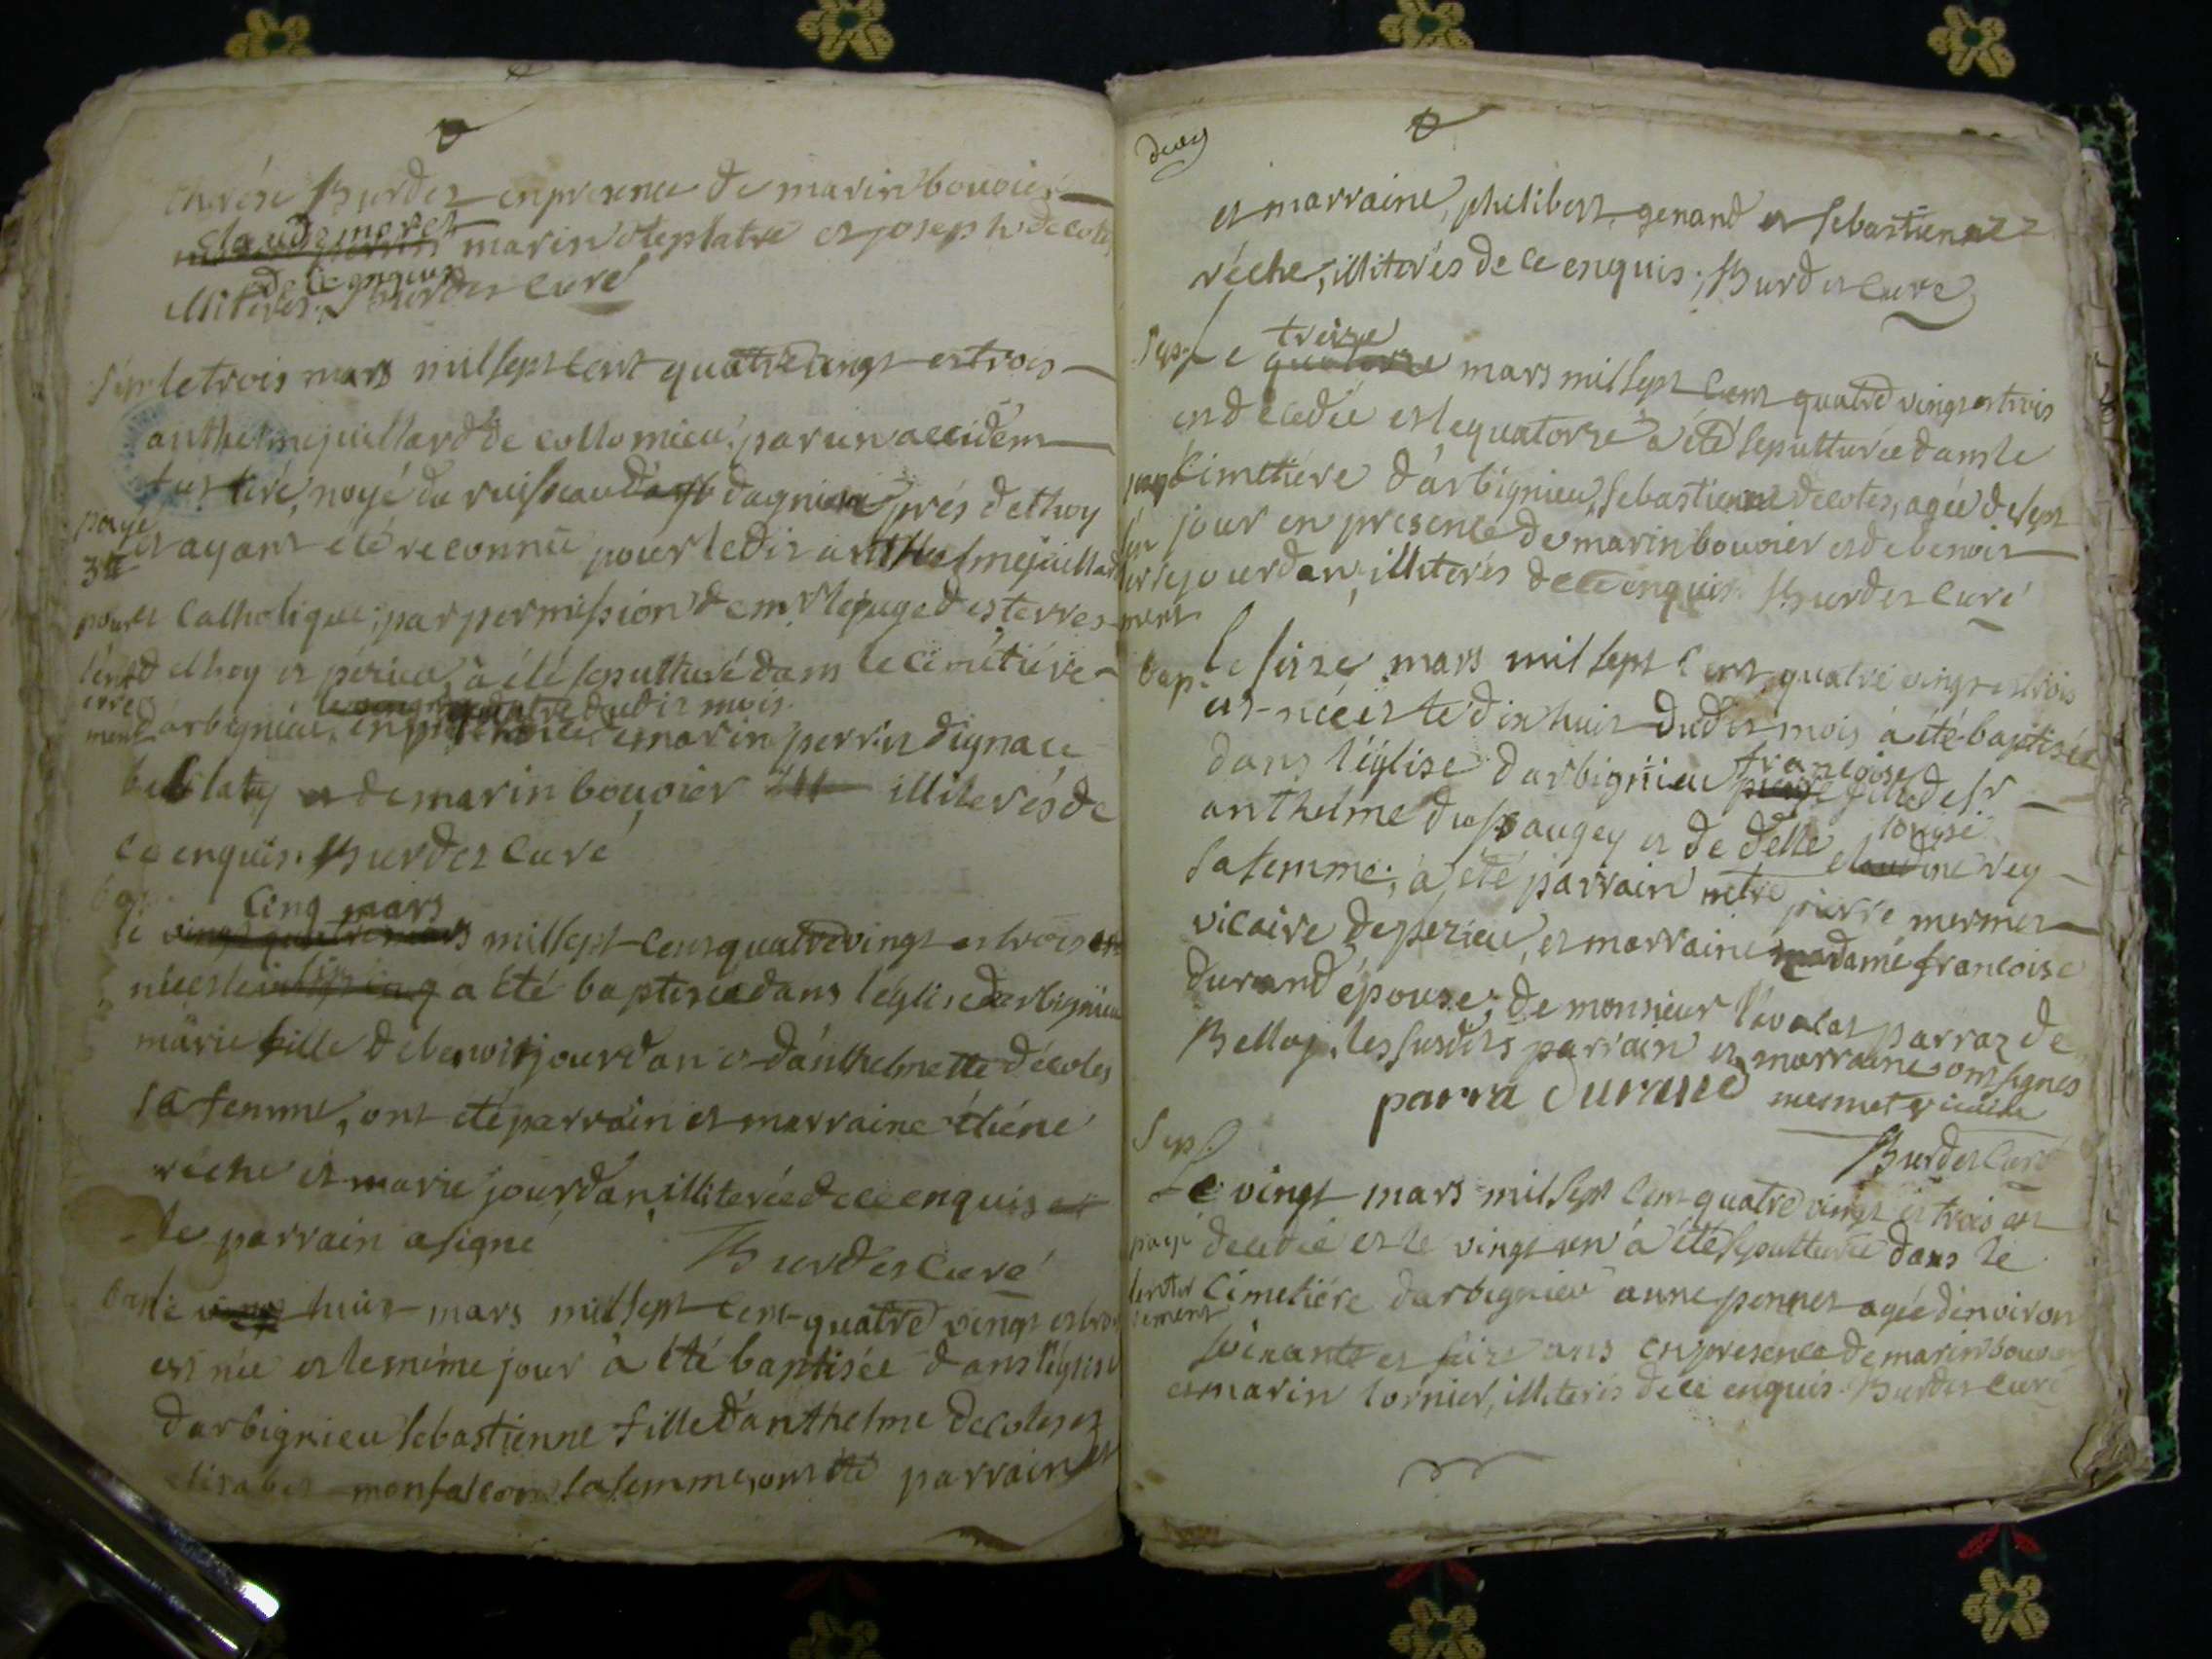 thérése Burdet en presence de marin bouvier
claude moret
marin deplatre et joseph decotes
de ce enquis
illiterés. Burdet curé
sep. le trois mars mil sept cent quatre vingt et trois
anthelme juillard de collomieu par un accident
fut tiré, noyé du ruisseau d'agnieu prés de thoy
payé et ayant été reconnu pour le dit anthelme juillard
3lt
pour et catholique; par permission de mr le juge des terres
l'ent de thoy et périeu, a été sepulturé dans le cimétiére
erre le vingt quatre dudit mois.
ment arbignieu, en presence de marin perrin d'ignace
bellaty et de marin bouvier illiterés de
ce enquis. Burdet curé
bap. cinq mars
le vingt quatre mars mil sept cent quatre vingt et trois est
née et le vingt cinq a été baptisée dans l'église d'arbignieu
marie fille de benoit jourdan et d'anthelmette décotes
sa femme, ont eté parrain et marraine étiéne
réche et marie jourdan, illiterée de ce enquis et
le parrain a signé Burdet curé
bap. le vingt huit mars mil sept cent quatre vingt et trois
est née et le méme jour a été baptisée dans l'église
d'arbignieu sebastienne fille d'anthelme decotes et
elisabet monfalcon sa femme, ont été parrain et
deux
et marraine, philibert genand et sebastienne
réche, illiterés de ce enquis; Burdet curé
treize
sep. Le quatorze mars mil sept cent quatre vingt et trois
est décédée et le quatorze a été sepulturée dans le
payé cimetiére d'arbignieu, sebastienne decotes, agée de sept
l'en jour en presence de marin bouvier et de benoit
terre jourdan, illiterés de ce enquis. Burdet curé
ment
bap. le seize mars mil sept cent quatre vingt et trois
est née et le dix huit dudit mois a été baptisée
françoise
dans l'église d'arbignieu pierre fille de sr
anthelme du saugey et de delle louise
claudine rey
sa femme; a été parrain mtre pierre mermet
vicaire de pezieu, et marraine madame françoise
durand épouse; de monsieur l'avocat parraz de
Belley. les susdits parrain et marraine ont signés
parra Durand mermet vicaire
Burdet curé
Sep.
Le vingt mars mil sept cent quatre vingt et trois est
payé decedée et le vingt un a été sepulturée dans le
l'enter cimetiére d'arbignieu anne pennet agée d'environ
rement
soixante et seize ans en presence de marin bouvier
et marin cornier, illiterés de ce enquis. Burdet curé